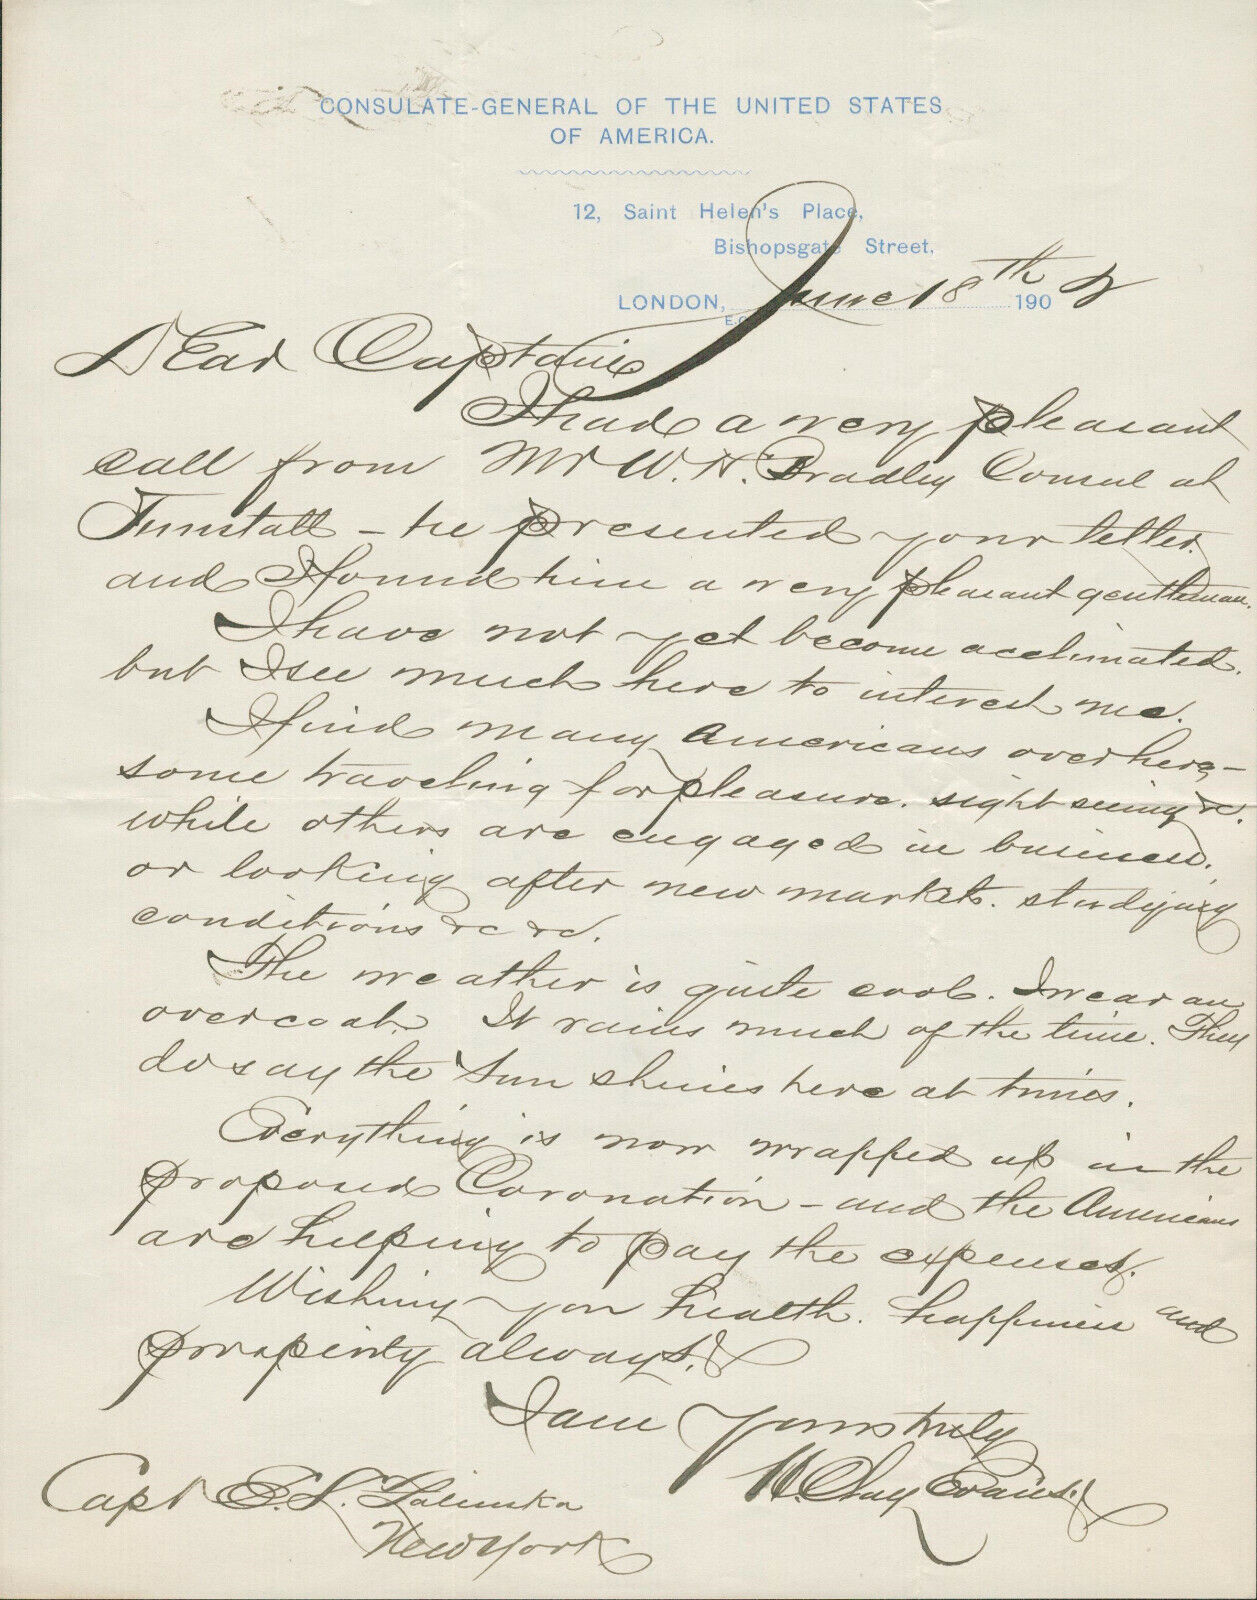 CONSULATE-GENERAL OF THE UNITED STATES
OF AMERICA.
12, Saint Helen's Place,
Bishopsgate Street.
LONDON, June 18th 1902
E.C.
Dear Captain
I had a very pleasant
call from Mr W. H. Bradley Consul at
Tunstall - he presented your letter.
and I found him a very pleasant gentleman.
I have not yet become acclimated.
but I see much here to interest me.
I find many Americans over here -
some traveling for pleasure. sight seeing &c.
while others are engaged in business.
or looking after new markets. studying
conditions &c &c.
The weather is quite cool. I wear an
overcoat. It rains much of the time. They
do say the Sun shines here at times.
Everything is now wrapped up in the
proposed Coronation - and the Americans
are helping to pay the expenses.
Wishing you health. happiness and
prosperity always.
I am yours truly
H. Clay Evans.
Capt E. L. Zalinska
New York